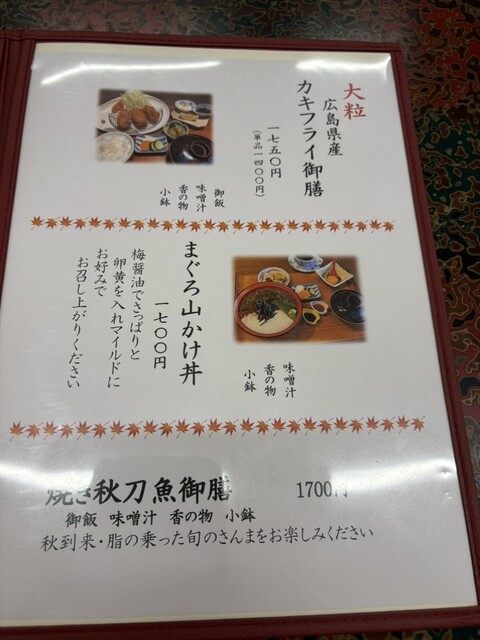 大粒
広島県産
カキフライ御膳
一七五〇円
(単品一四〇〇円)
御飯
味噌汁
香の物
小鉢
まぐろ山かけ丼
一七〇〇円
梅醤油でさっぱりと
卵黄を入れマイルドに
お好みで
お召し上がりください
味噌汁
香の物
小鉢
焼き秋刀魚御膳 1700円
御飯 味噌汁 香の物 小鉢
秋到来・脂の乗った旬のさんまをお楽しみください